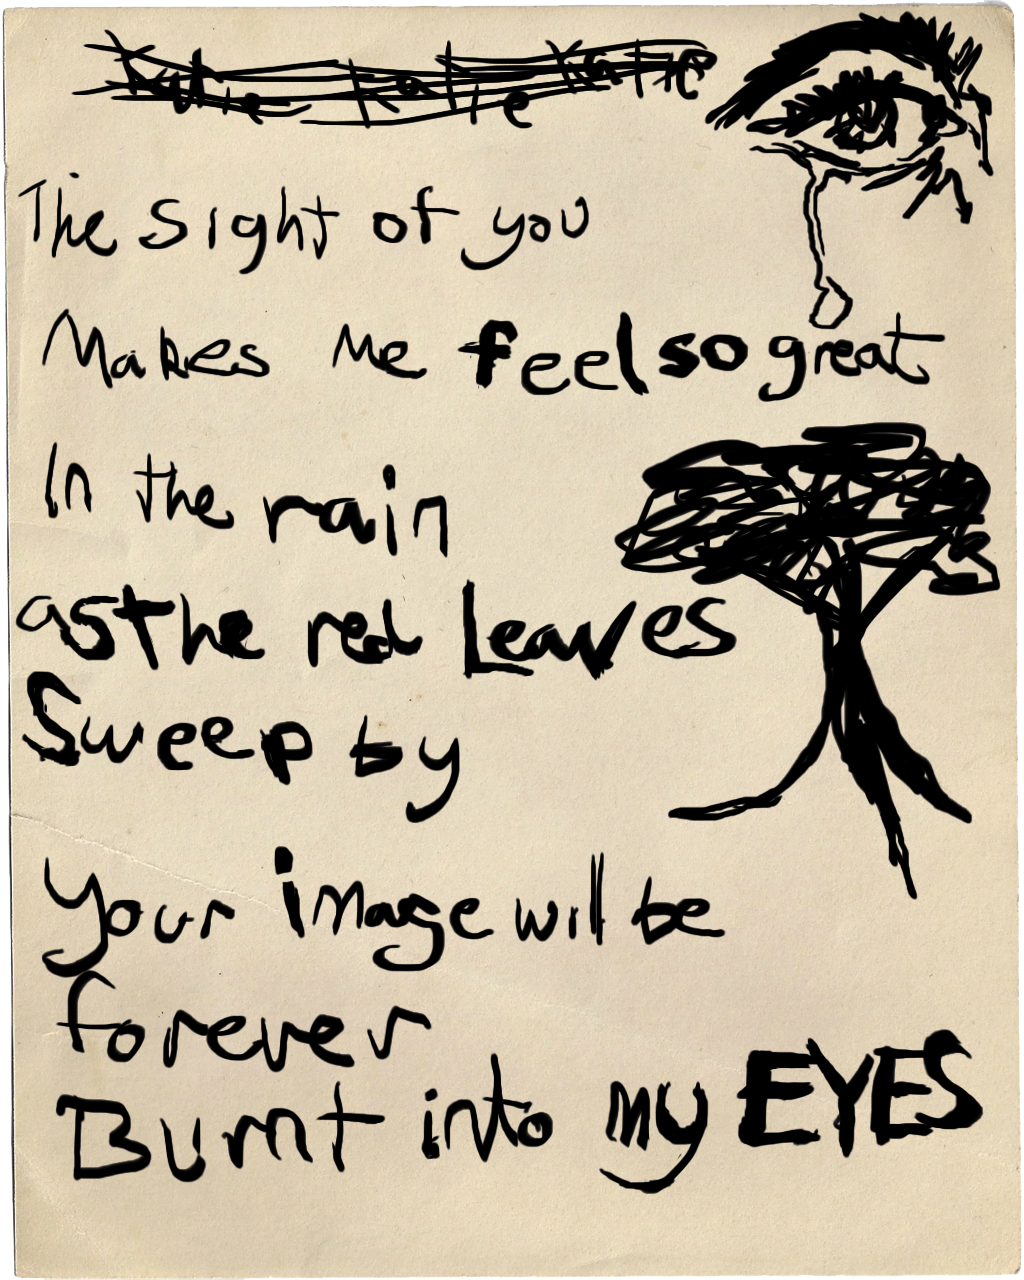 Katie Katie Katie
The sight of you
Makes Me feel so great
In the rain
as the red Leaves
Sweep by
your image will be
forever
Burnt into my EYES